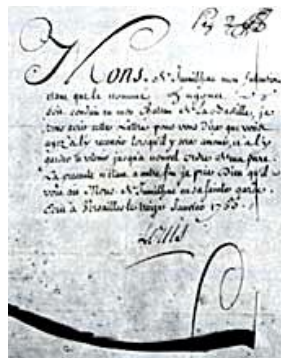 Mons. de Jumilhac mon Intention
étant que le nommé
soit conduit en mon Château de la Bastille, je
vous écris cette lettre pour vous dire que vous
ayez à l'y recevoir lorsqu'il y sera amené, et à l'y
garder et retenir jusqu'à nouvel ordre de ma part.
La présente n'étant à autre fin, je prie Dieu qu'il
vous ait Mons. de Jumilhac en sa sainte garde.
Ecrit à Versailles le Janvier 1765
Louis